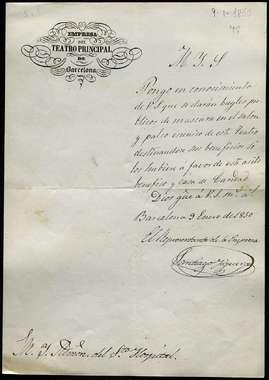 EMPRESA
DEL
TEATRO PRINCIPAL
DE
Barcelona.
M. I. S.
Pongo en conocimiento
de V.S. que se darán bayles pu
blicos de mascara en el salon
y palco escenico de este Teatro
destinandose sus beneficios si
los hubiere a favor de este asilo
benefico y casa de Caridad
Dios gue. a V.S. ms. as.
Barcelona 9 Enero de 1850
El Representante de la Empresa
Santiago Figueras
M. I. Admon. del Sto. Hospital.